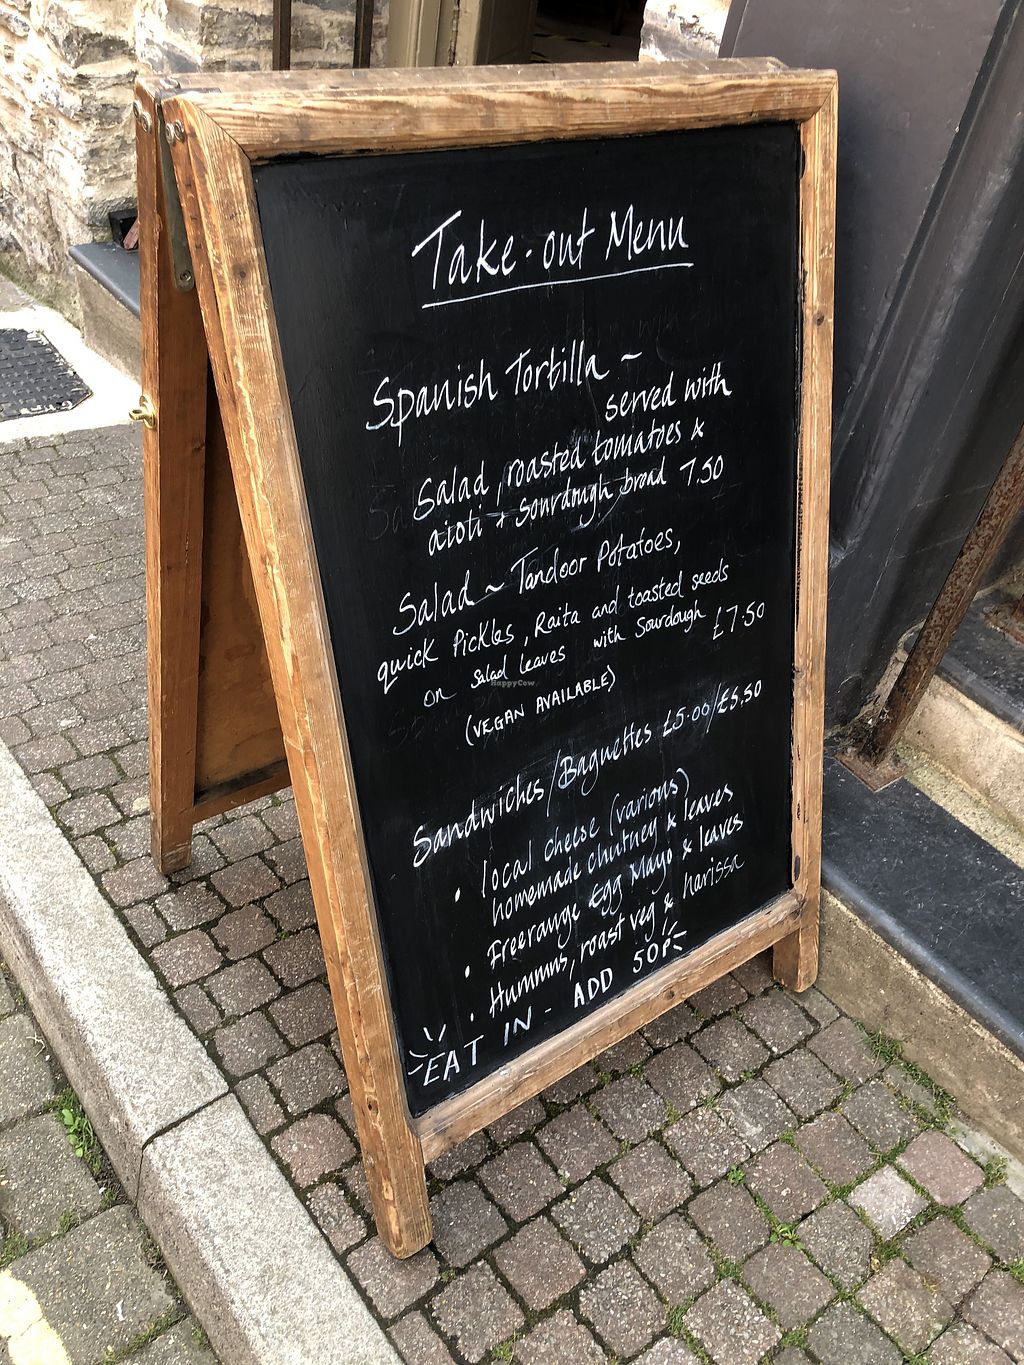 Take-out Menu
Spanish Tortilla ~
served with
Salad, roasted tomatoes &
aioli + Sourdough bread 7.50
Salad ~ Tandoor Potatoes,
quick Pickles, Raita and toasted seeds
on salad leaves with Sourdough £7.50
(VEGAN AVAILABLE)
Sandwiches/Baguettes £5.00/£5.50
• local cheese (various)
homemade chutney & leaves
• Freerange Egg Mayo & leaves
• Hummus, roast veg & harissa
EAT IN - ADD 50P
HappyCow